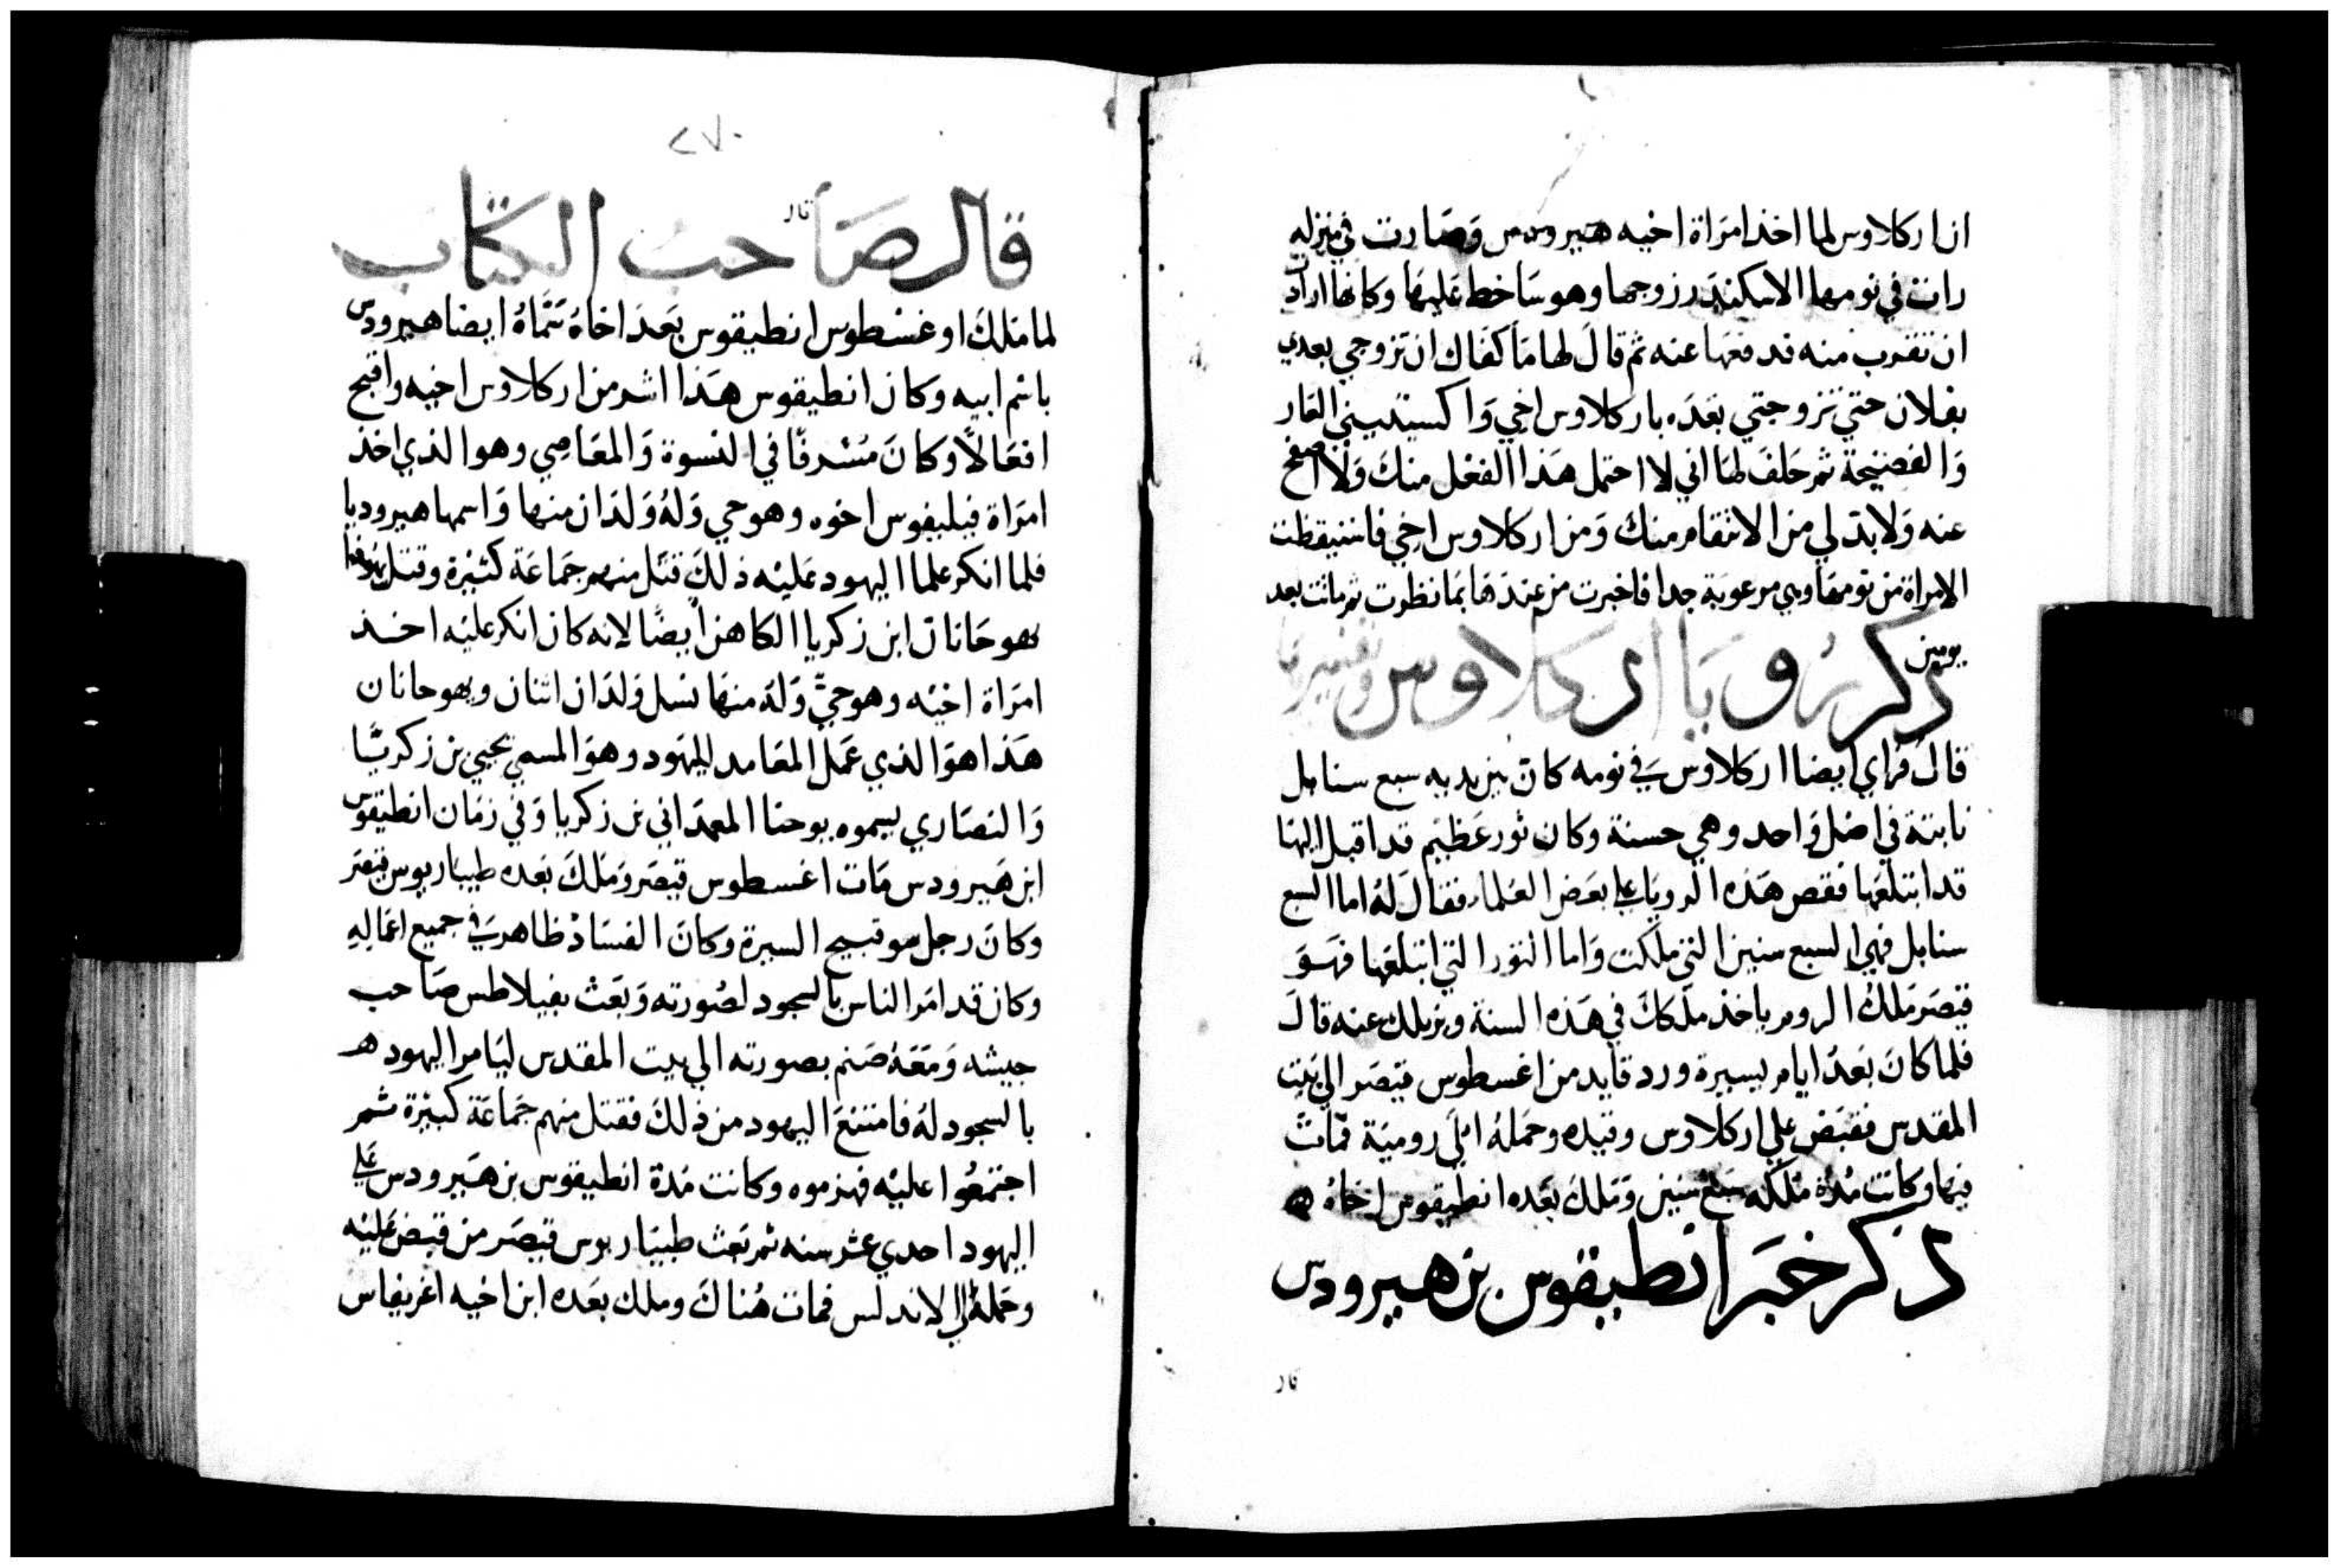 ان اركلاوس لما اخذ امراة اخيه هيرودس وصارت في منزله
رات في نومها الاسكندر زوجها وهو ساخط عليها وكانها ارادت
ان تقرب منه فدفعها عنه ثم قال لها ما كفاك ان تزوجي بعدي
بفلان حتي تزوجتي بعده باركلاوس اخي واكسيتيني العار
والفضيحة ثم حلف لها اني لا احتمل هذا الفعل منك ولا اصفح
عنه ولا بد لي من الانتقام منك ومن اركلاوس اخي فاستيقظت
الامراة من نومها وهي مرعوبة جدا فاخبرت من عندها بما نظرت ثم ماتت بعد
يومين
ذكر رويا اركلاوس وتفسيرها
قال فراي ايضا اركلاوس في نومه كان بين يديه سبع سنابل
نابتة في اصل واحد وهي حسنة وكان ثور عظيم قد اقبل اليها
قد ابتلعها فقص هذه الرويا علي بعض العلماء فقال له اما السبع
سنابل فهي السبع سنين التي ملكت واما الثور التي ابتلعها فهو
قيصر ملك الروم ياخذ ملكك في هذه السنة ويزيلك عنه قال
فلما كان بعد ايام يسيرة ورد قايد من اغسطوس قيصر الي بيت
المقدس فقبض علي اركلاوس وقيده وحمله الي رومية فمات
فيها وكانت مدة ملكه سبع سنين وملك بعده انطيقوس اخاه
ذكر خبر انطيقوس بن هيرودس
قال
٢٧٠
قال صاحب الكتاب
قال
لما ملك اوغسطوس انطيقوس بعد اخاه سماه ايضا هيرودس
باسم ابيه وكان انطيقوس هذا اشر من اركلاوس اخيه واقبح
افعالا وكان مسرفا في النسوة والمعاصي وهو الذي اخذ
امراة فيلبفوس اخوه وهو حي وله ولدان منها واسمها هيروديا
فلما انكر علما اليهود عليه ذلك قتل منهم جماعة كثيرة وقتل
يهوحانان ابن زكريا الكاهن ايضا لانه كان انكر عليه اخذ
امراة اخيه وهو حي وله منها نسل ولدان اثنان ويهوحانان
هذا هو الذي عمل المعامد لليهود وهو المسمي يحيي بن زكريا
والنصاري يسموه يوحنا المعمداني بن زكريا وفي زمان انطيقوس
ابن هيرودس مات اغسطوس قيصر وملك بعده طيباريوس قيصر
وكان رجل هو قبيح السيرة وكان الفساد ظاهر في جميع اعماله
وكان قد امر الناس بالسجود لصورته وبعث بفيلاطس صاحب
جيشه ومعه صنم بصورته الي بيت المقدس ليامر اليهود هـ
بالسجود له فامتنع اليهود من ذلك فقتل منهم جماعة كبيرة ثم
اجتمعوا عليه فهزموه وكانت مدة انطيقوس بن هيرودس علي
اليهود احدي عشر سنه ثم بعث طيباريوس قيصر من قبض عليه
وحمله الي الاندلس فمات هناك وملك بعده ابن اخيه اغريفاس